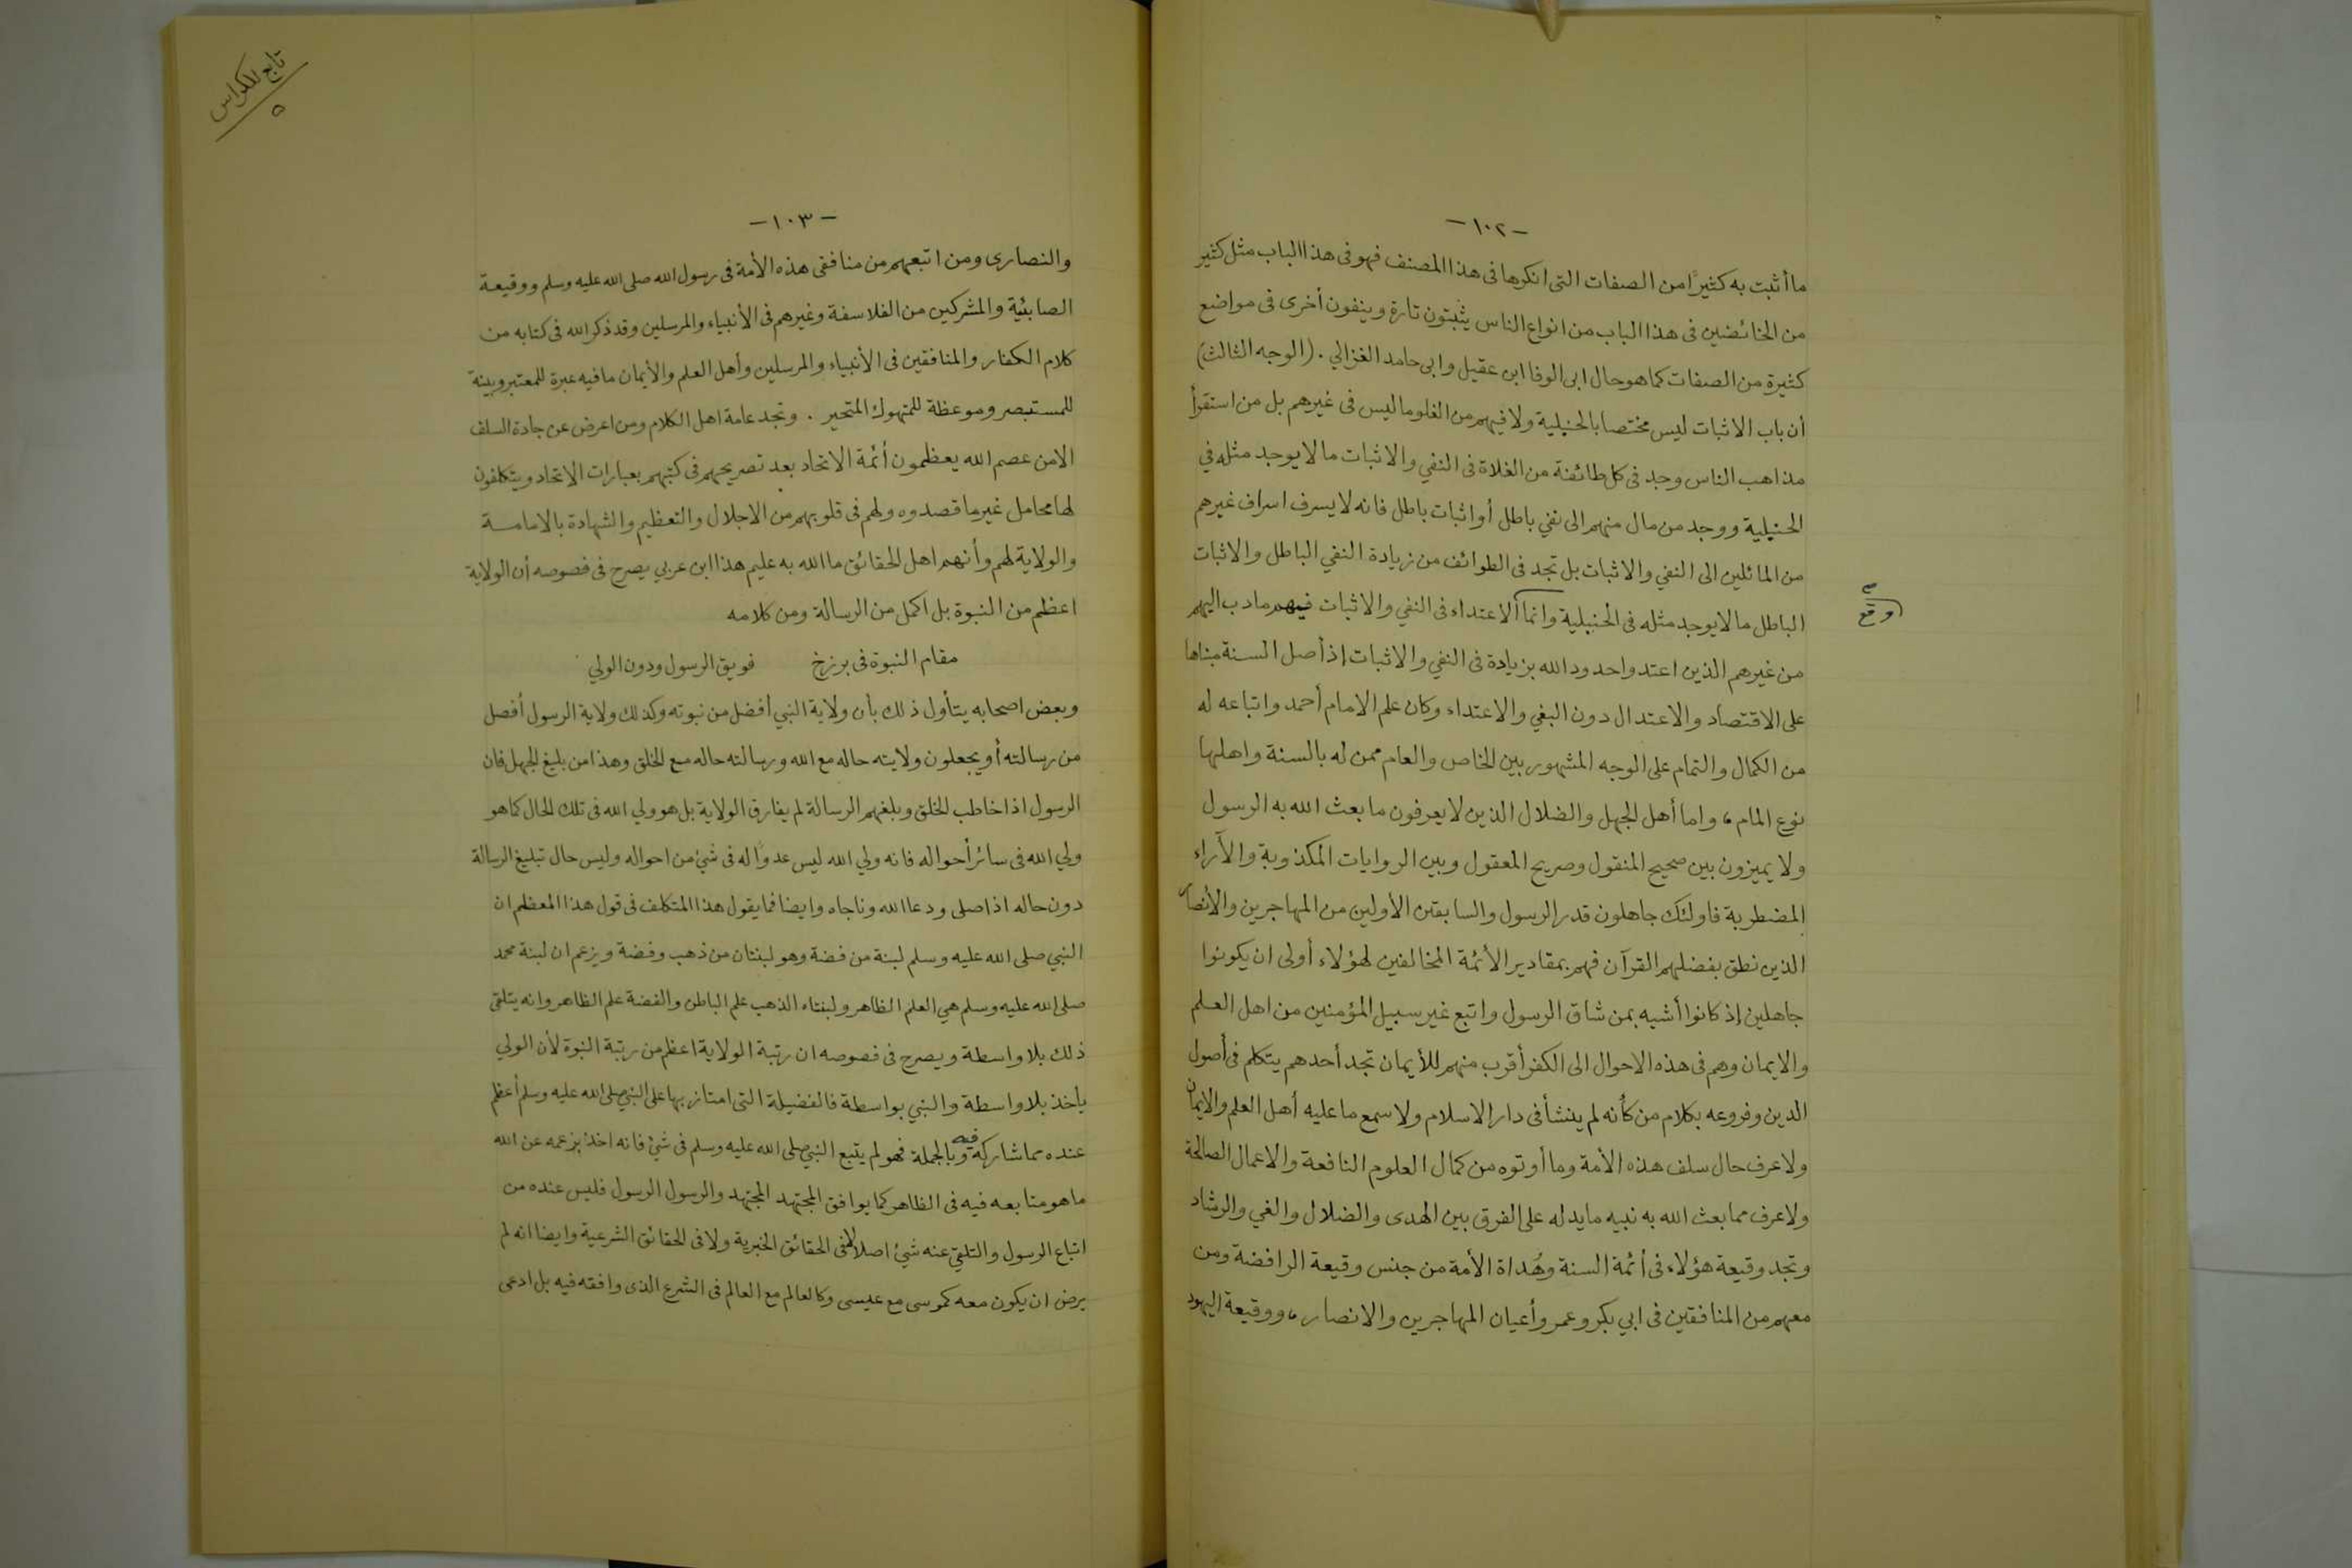 -١٠٢-
ما أثبت به كثيرًا من الصفات التى انكرها فى هذا المصنف فهو فى هذا الباب مثل كثير
من الخائضين فى هذا الباب من انواع الناس يثبتون تارة وينفون أخرى فى مواضع
كثيرة من الصفات كما هو حال ابى الوفا ابن عقيل وابى حامد الغزالي . (الوجه الثالث)
أن باب الاثبات ليس مختصا بالحنبلية ولا فيهم من الغلو ما ليس فى غيرهم بل من استقرأ
مذاهب الناس وجد فى كل طائفة من الغلاة فى النفي والاثبات ما لا يوجد مثله في
الحنبلية ووجد من مال منهم الى نفي باطل أو اثبات باطل فانه لا يسرف اسراف غيرهم
من المائلين الى النفي والاثبات بل تجد فى الطوائف من زيادة النفي الباطل والاثبات
الباطل ما لا يوجد مثله فى الحنبلية وانما الاعتداء فى النفي والاثبات فيهم مادب اليهم
وقع
صح
من غيرهم الذين اعتدوا حدود الله بزيادة فى النفي والاثبات إذ أصل السنة مبناها
على الاقتصاد والاعتدال دون البغي والاعتداء وكان علم الامام أحمد واتباعه له
من الكمال والتمام على الوجه المشهور بين الخاص والعام ممن له بالسنة واهلها
نوع المام، واما أهل الجهل والضلال الذين لا يعرفون ما بعث الله به الرسول
ولا يميزون بين صحيح المنقول وصريح المعقول وبين الروايات المكذوبة والآراء
المضطربة فاولئك جاهلون قدر الرسول والسابقين الأولين من المهاجرين والأنصار
الذين نطق بفضلهم القرآن فهم بمقادير الأئمة المخالفين لهؤلاء أولى ان يكونوا
جاهلين إذ كانوا أشبه بمن شاق الرسول واتبع غير سبيل المؤمنين من اهل العلم
والايمان وهم فى هذه الاحوال الى الكفر أقرب منهم للأيمان تجد أحدهم يتكلم فى أصول
الدين وفروعه بكلام من كأنه لم ينشأ فى دار الاسلام ولا سمع ما عليه أهل العلم والايمان
ولا عرف حال سلف هذه الأمة وما أوتوه من كمال العلوم النافعة والاعمال الصالحة
ولا عرف مما بعث الله به نبيه ما يدله على الفرق بين الهدى والضلال والغي والرشاد
وتجد وقيعة هؤلاء فى أئمة السنة وهُداة الأمة من جنس وقيعة الرافضة ومن
معهم من المنافقين فى ابي بكر وعمر وأعيان المهاجرين والانصار، ووقيعة اليهود
تابع للكراس
٥
-١٠٣-
والنصارى ومن اتبعهم من منافقى هذه الأمة فى رسول الله صلى الله عليه وسلم ووقيعة
الصابئية والمشركين من الفلاسفة وغيرهم فى الأنبياء والمرسلين وقد ذكر الله فى كتابه من
كلام الكفار والمنافقين فى الأنبياء والمرسلين وأهل العلم والأيمان ما فيه عبرة للمعتبر وبينة
للمستبصر وموعظة للمتهوك المتحير . وتجد عامة اهل الكلام ومن اعرض عن جادة السلف
الا من عصم الله يعظمون أئمة الاتحاد بعد تصريحهم فى كتبهم بعبارات الاتحاد ويتكلفون
لها محامل غير ما قصدوه ولهم فى قلوبهم من الاجلال والتعظيم والشهادة بالامامة
والولاية لهم وأنهم اهل الحقائق ما الله به عليم هذا ابن عربي يصرح فى فصوصه أن الولاية
اعظم من النبوة بل اكمل من الرسالة ومن كلامه
مقام النبوة فى برزخ    فويق الرسول ودون الولي
وبعض اصحابه يتأول ذلك بأن ولاية النبي أفضل من نبوته وكذلك ولاية الرسول أفضل
من رسالته أو يجعلون ولايته حاله مع الله ورسالته حاله مع الخلق وهذا من بليغ الجهل فان
الرسول اذا خاطب الخلق وبلغهم الرسالة لم يفارق الولاية بل هو ولي الله فى تلك الحال كما هو
ولي الله فى سائر أحواله فانه ولي الله ليس عدوًا له فى شئ من احواله وليس حال تبليغ الرسالة
دون حاله اذا صلى ودعا الله وناجاه وايضا فما يقول هذا المتكلف فى قول هذا المعظم ان
النبي صلى الله عليه وسلم لبنة من فضة وهو لبنتان من ذهب وفضة ويزعم ان لبنة محمد
صلى الله عليه وسلم هي العلم الظاهر ولبنتاه الذهب علم الباطن والفضة علم الظاهر وانه يتلقى
ذلك بلا واسطة ويصرح فى فصوصه ان رتبة الولاية اعظم من رتبة النبوة لأن الولي
يأخذ بلا واسطة والنبي بواسطة فالفضيلة التى امتاز بها على النبي صلى الله عليه وسلم أعظم
عنده مما شاركه فيه وبالجملة فهو لم يتبع النبي صلى الله عليه وسلم فى شئ فانه اخذ بزعمه عن الله
ما هو متابعه فيه فى الظاهر كما يوافق المجتهد المجتهد والرسول الرسول فليس عنده من
اتباع الرسول والتلقي عنه شئ اصلا لا فى الحقائق الخبرية ولا فى الحقائق الشرعية وايضا انه لم
يرض ان يكون معه كموسى مع عيسى وكالعالم مع العالم فى الشرع الذى وافقه فيه بل ادعى